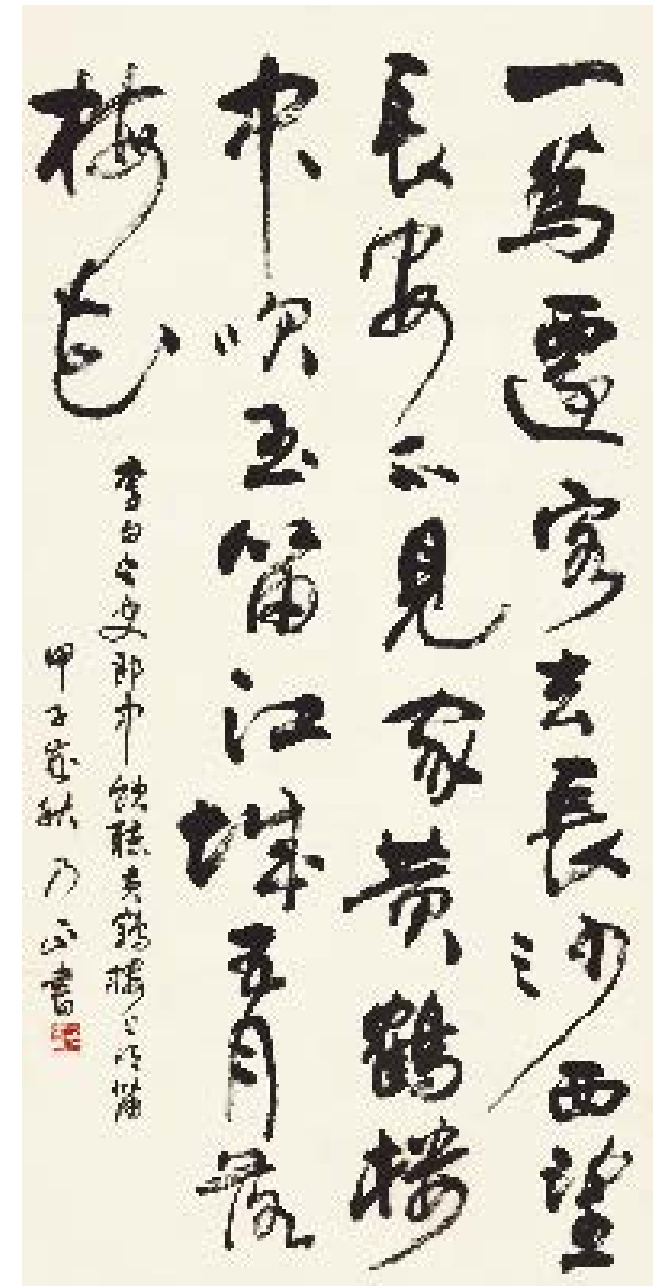 一為遷客去長沙西望
長安不見家黄鶴樓
中吹玉笛江城五月落
梅花
李白与史郎中飲聽黄鶴樓上吹笛
甲子歲秋乃正書